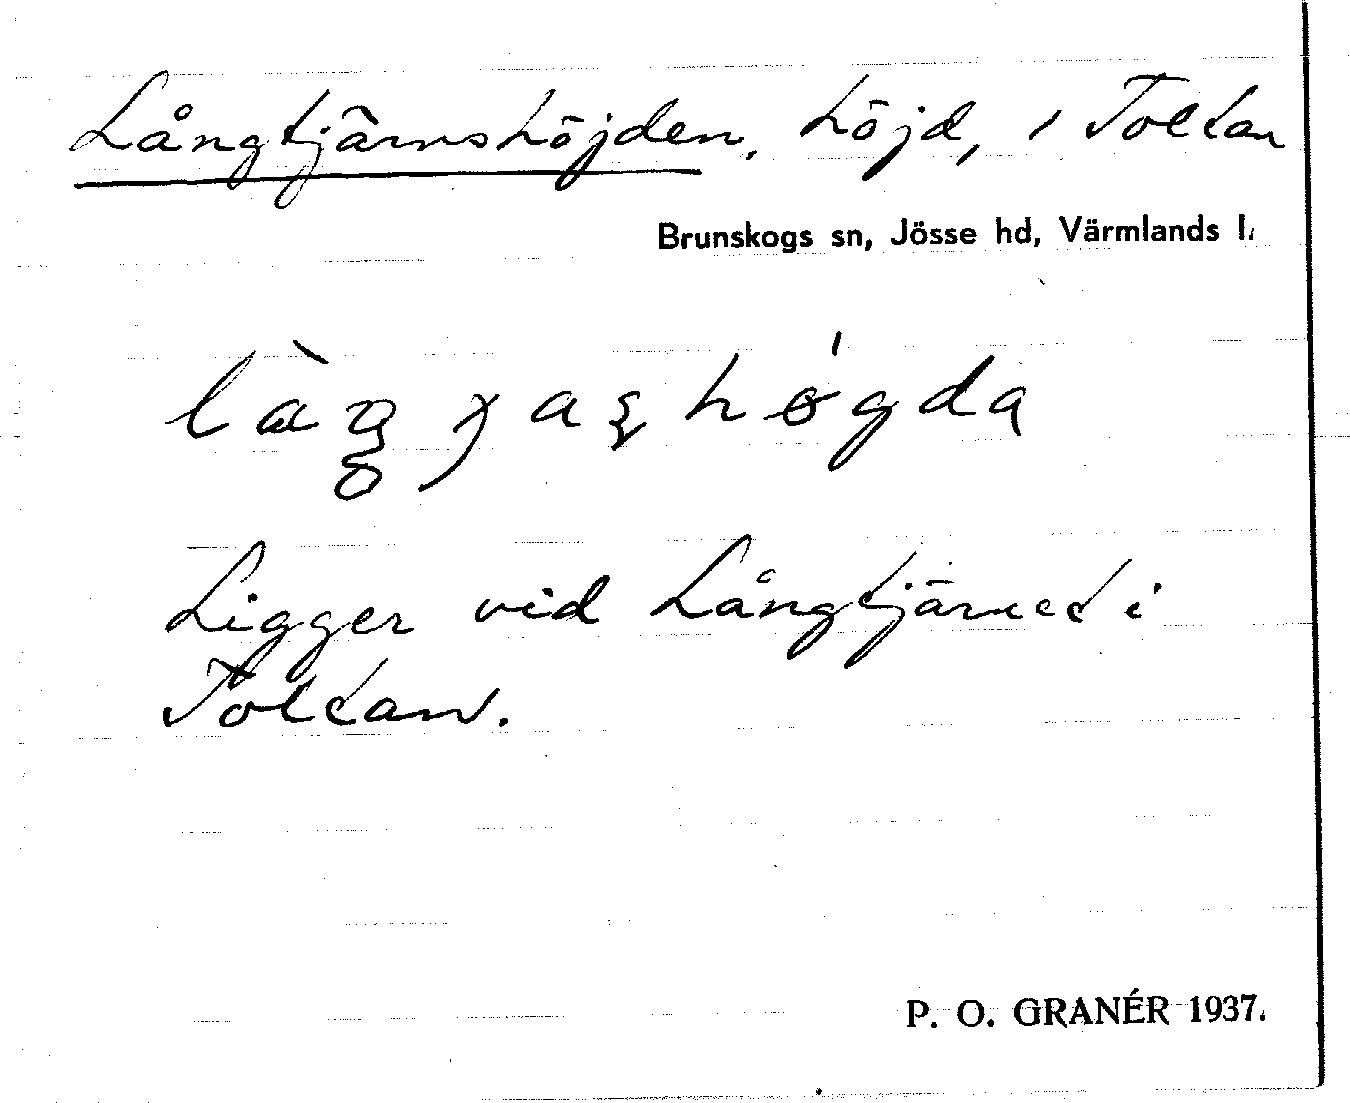 Långtjärnshöjden, höjd, i Toltan
Brunskogs sn, Jösse hd, Värmlands l.
Ligger vid Långtjärnet i
Toltan.
P. O. GRANÉR 1937.